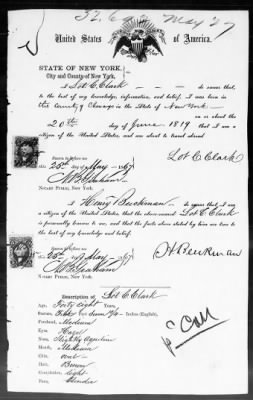 32,6 2 May 27
United States of America.
STATE OF NEW YORK,
City and County of New York,
I Lot C. Clark do swear that,
to the best of my knowledge, information, and belief, I was born in
the County of Chenango in the State of New York
on or about the
20th day of June 1819 that I am a
citizen of the United States, and am about to travel abroad
Sworn to before me
this 25th day of May 1867
Lot C Clark
NOTARY PUBLIC, New York.
I Henry Beekman do swear that I am
a citizen of the United States, that the above-named Lot C. Clark
is personally known to me, and that the facts above stated by him are true to
the best of my knowledge and belief.
Sworn to before me
this 25th day of May 1867
H Beekman
NOTARY PUBLIC, New York.
Description of Lot C. Clark
Age, Forty eight Years,
Stature, Five feet Inches (English),
Forehead, Medium
Eyes, Hazel
Nose, Slightly Aquiline
Mouth, Medium
Chin,
Hair, Brown
Complexion, light
Face, Slender